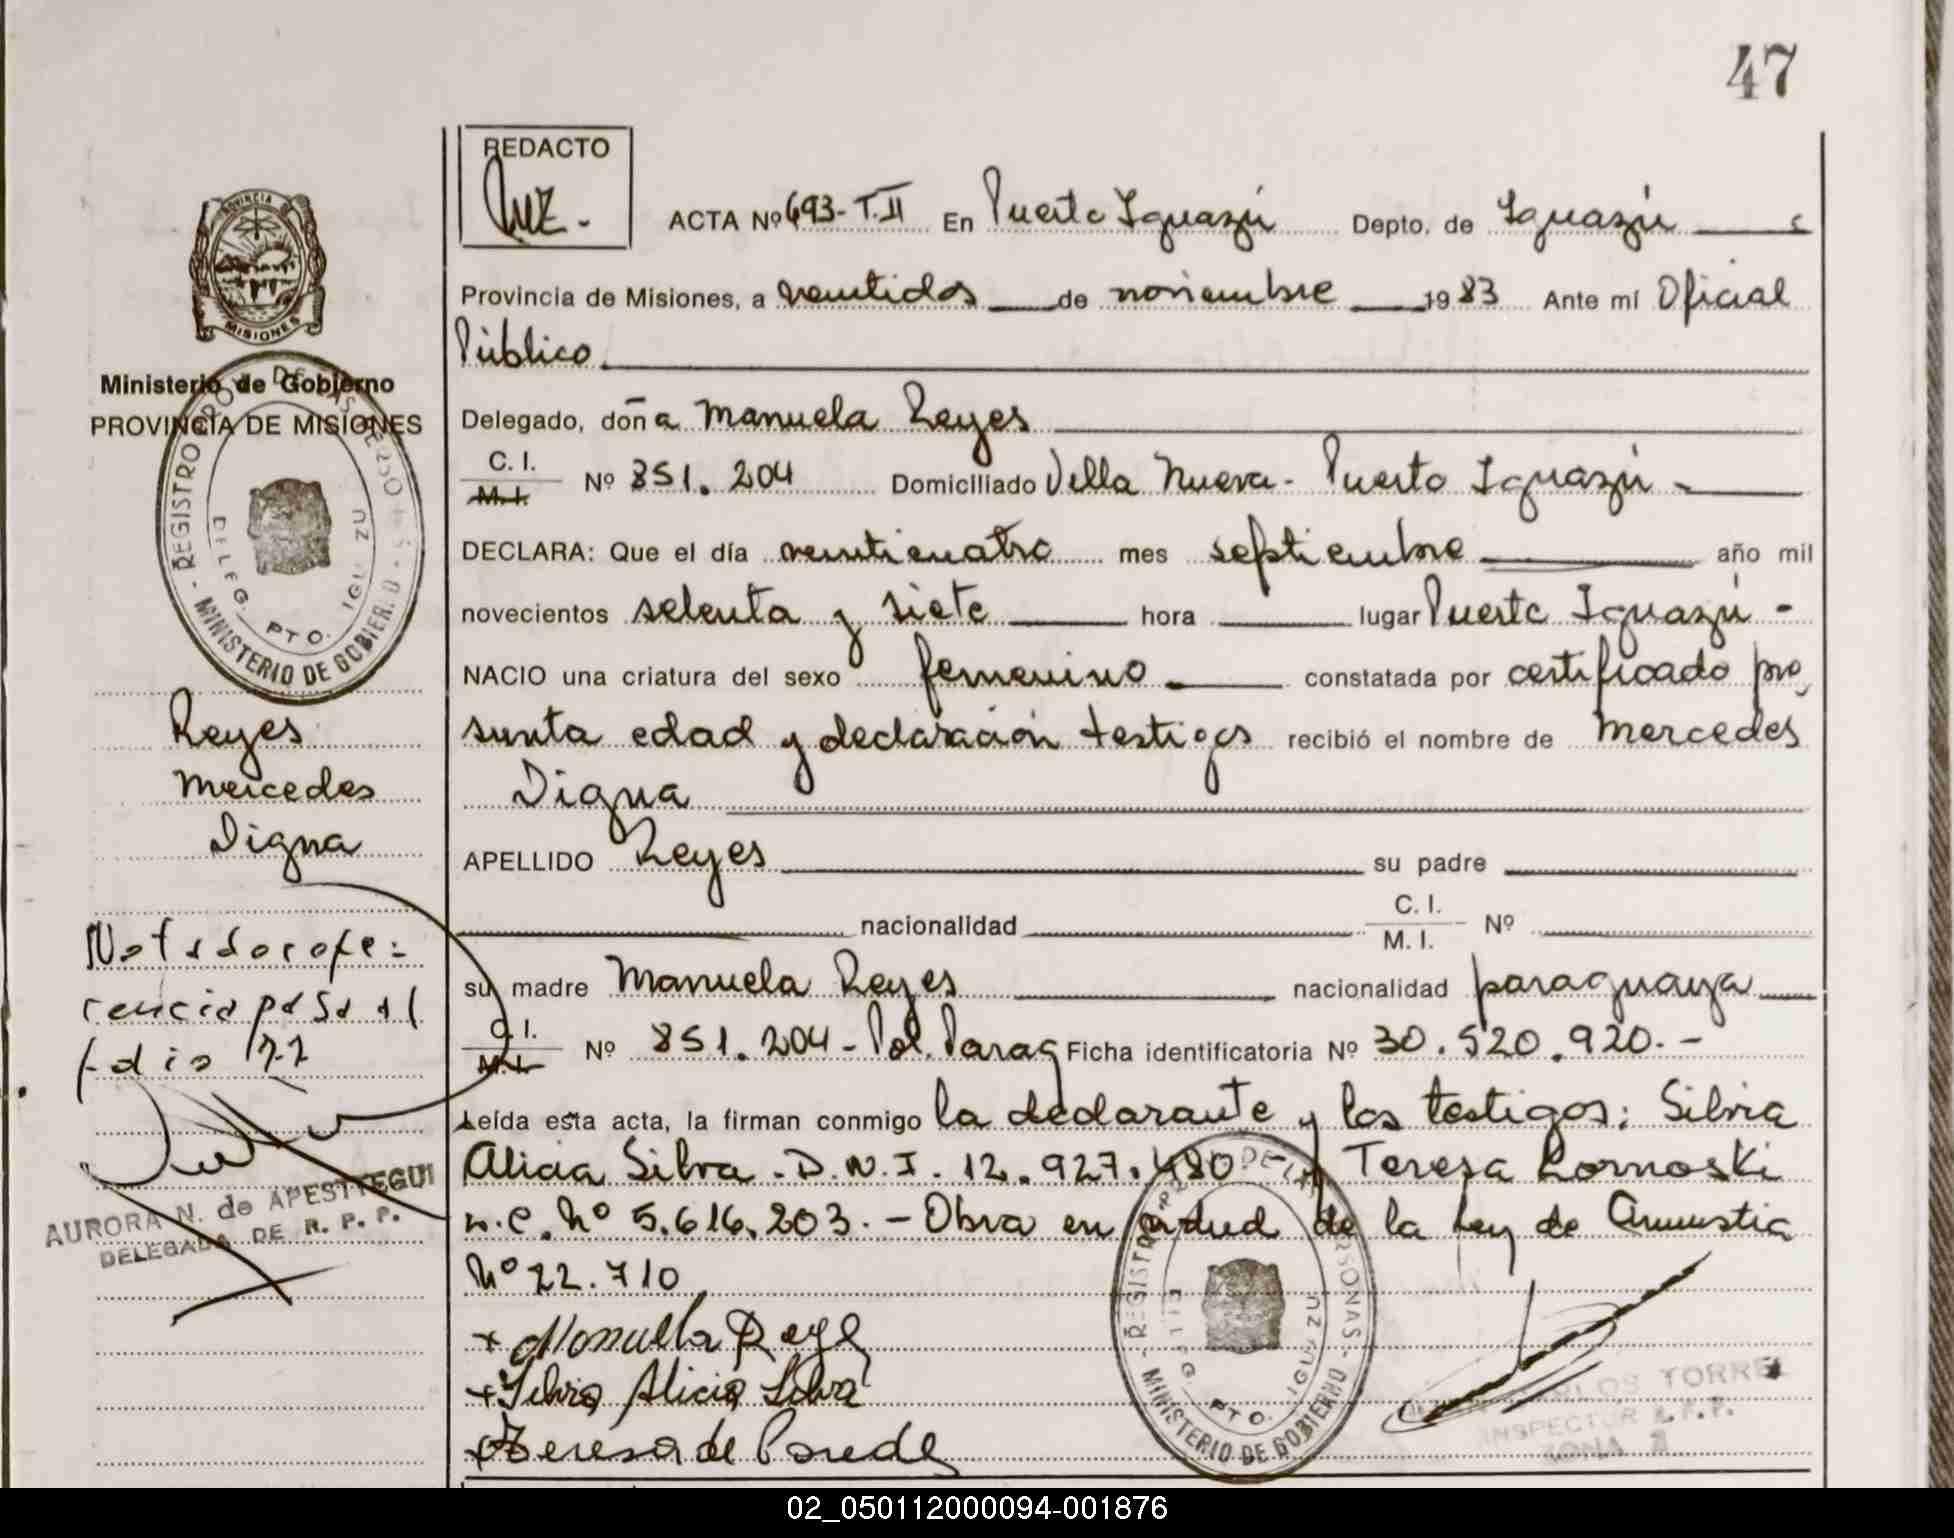 47
REDACTO
ACTA Nº 693-T.II En Puerto Iguazú Depto. de Iguazú
Provincia de Misiones, a veintidos de noviembre 1983 Ante mí Oficial
Público
Delegado, doña Manuela Reyes
C. I.
M. I. Nº 851.204 Domiciliado Villa Nueva - Puerto Iguazú -
DECLARA: Que el día veinticuatro mes septiembre año mil
novecientos setenta y siete hora lugar Puerto Iguazú -
NACIO una criatura del sexo femenino constatada por certificado pre
sunta edad y declaración testigos recibió el nombre de Mercedes
Digna
APELLIDO Reyes su padre
nacionalidad C. I.
M. I. Nº
su madre Manuela Reyes nacionalidad paraguaya
C. I.
M. I. Nº 851.204 - Pol. Parag Ficha identificatoria Nº 30.520.920.-
Leída esta acta, la firman conmigo la declarante y los testigos: Silvia
Alicia Silva - D.N.I. 12.927.480 - y Teresa Lornoski
L.C. Nº 5.616.203. - Obra en virtud de la Ley de Amnistia
Nº 22.710
+ Manuela Reye
+ Silvia Alicia Silva
+ Teresa de Parede
PROVINCIA DE
MISIONES
Ministerio de Gobierno
PROVINCIA DE MISIONES
REGISTRO PROV. DE LAS PERSONAS
DELEG. PTO. IGUAZU
- MINISTERIO DE GOBIERNO -
Reyes
Mercedes
Digna
Nota de refe=
rencia pasa al
folio
AURORA N. de APESTTEGUI
DELEGADA DE R. P. P.
REGISTRO DE LAS PERSONAS
DELEG. PTO. IGUAZU
- MINISTERIO DE GOBIERNO -
CARLOS TORRES
INSPECTOR R.P.P.
ZONA
02_050112000094-001876